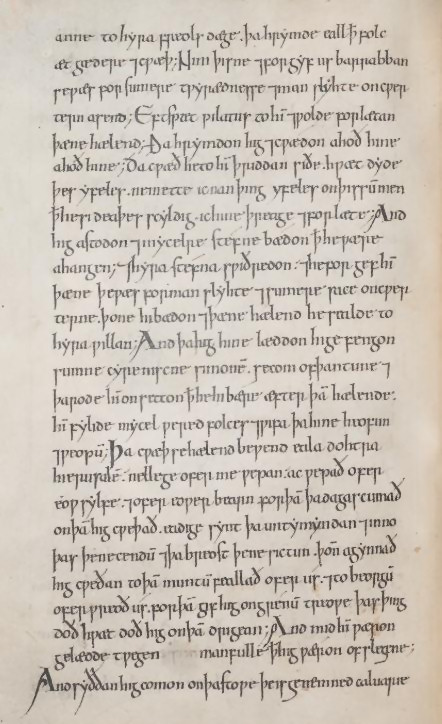 anne to hyra freols dæge. þa hrymde eall ꝥ folc
æt gædere ⁊ cwæþ; Nim þisne ⁊ forgyf us barrabban
se wæs for sumere twyrædnesse ⁊ man slyhte on cwer
tern asend; Eft spæc pilatus to hī ⁊ wolde forlætan
þæne hælend; Ða hrymdon hig ⁊ cwædon ahoð hine
ahoð hine; Ða cwæð he to hī þriddan siðe. hwæt dyde
þes yfeles. ne mette ic nan þing yfeles on þissū men
ꝥ he si deaþes scyldig. ic hine þreage ⁊ forlæte; And
hig astodon ⁊ mycelre stefne bædon ꝥ he wære
ahangen; ⁊ hyra stefna swiðredon. ⁊ he forgef hī
þæne þe wæs for man slyhte ⁊ sumere sace on cwer
terne. þone hi bædon ⁊ þæne hælend he sealde to
hyra willan; And þa hig hine læddon hig gefengon
sumne cyreniscne simonē. se com of þan tune ⁊
þa rode hī on setton ꝥ he hi bære æfter þā hælende.
hī fylide mycel wered folces ⁊ wifa þa hine heofun
⁊ weopū; Ða cwæþ se hælend bewend eala dohtra
hierusalē. nellege ofer me wepan. ac wepað ofer
eow sylfe. ⁊ ofer eower bearn forþā þa dagas cumað
on þā hig cweþað. eadige synt þa untymyndan ⁊ inno
þas þe ne cendū ⁊ þa breost þe ne sictun. þoñ agynnað
hig cweðan to þā muntū feallað ofer us. ⁊ to beorgū
ofer wreoð us. forþā gif hig on grenū treowe þas þing
doð hwæt doð hig on þā drigean; And mid hī wæron
gelæode twegen manfulle ꝥ hig wæron ofslegene;
And syððan hig comon on þa stowe þe is genemned caluarie